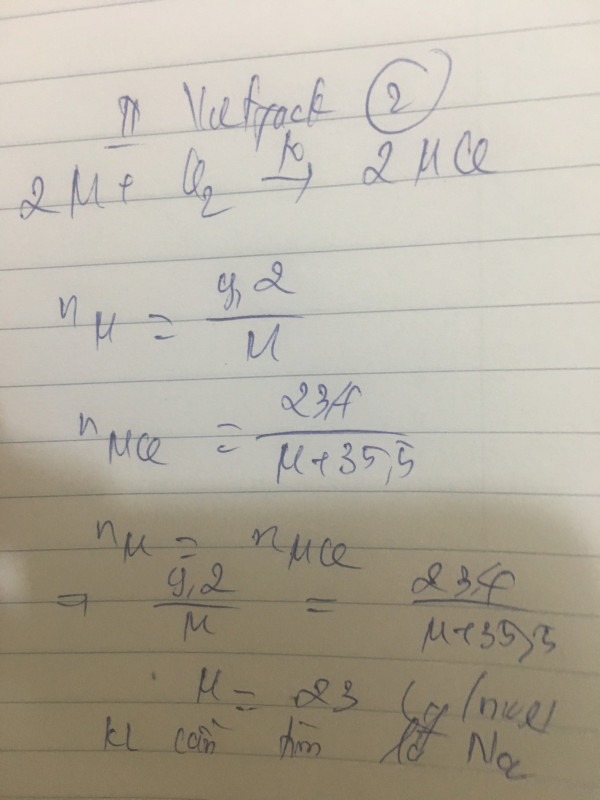 II Vietjack 2
2M + Cl₂ t⁰→ 2MCl
n_M = 9,2 / M
n_MCl = 23,4 / M+35,5
n_M = n_MCl
⇒ 9,2 / M = 23,4 / M+35,5
M = 23 (g/mol)
kl cần tìm là Na